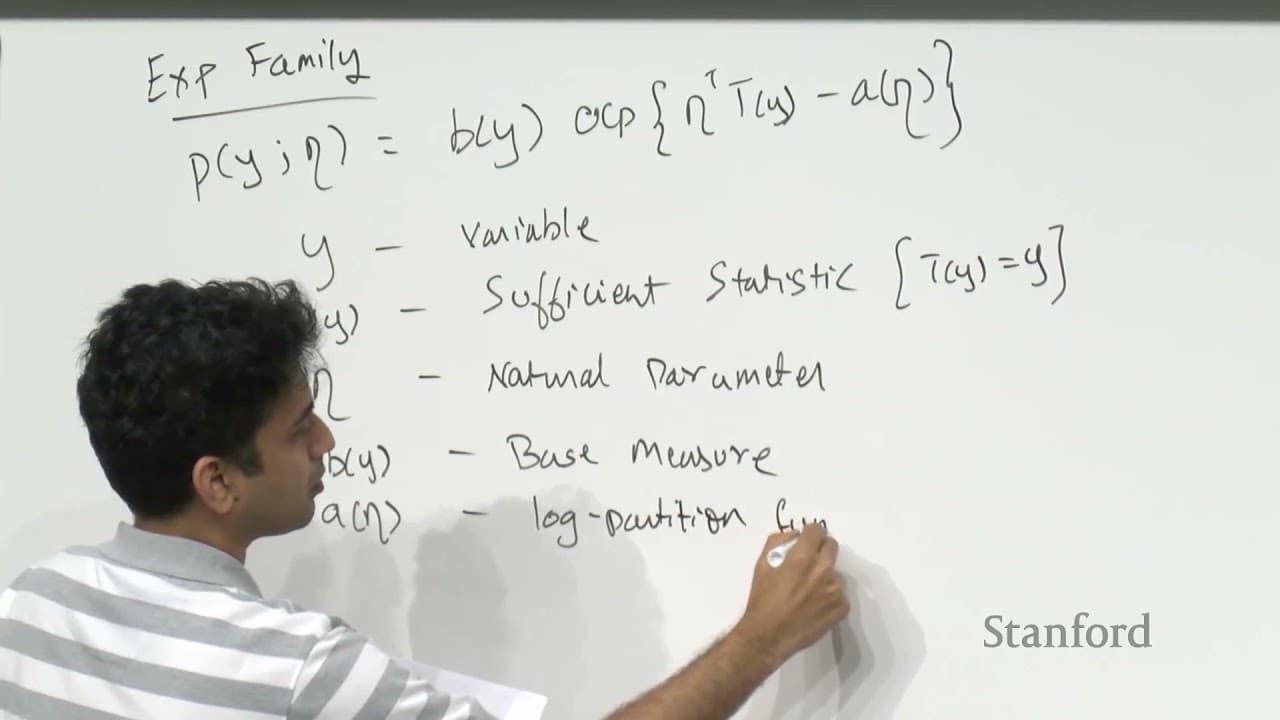 Exp Family
p(y; η) = b(y) exp{η^T T(y) - a(η)}
y - variable
y) - Sufficient Statistic [T(y) = y]
η - Natural Parameter
b(y) - Base Measure
a(η) - log-partition fun
Stanford